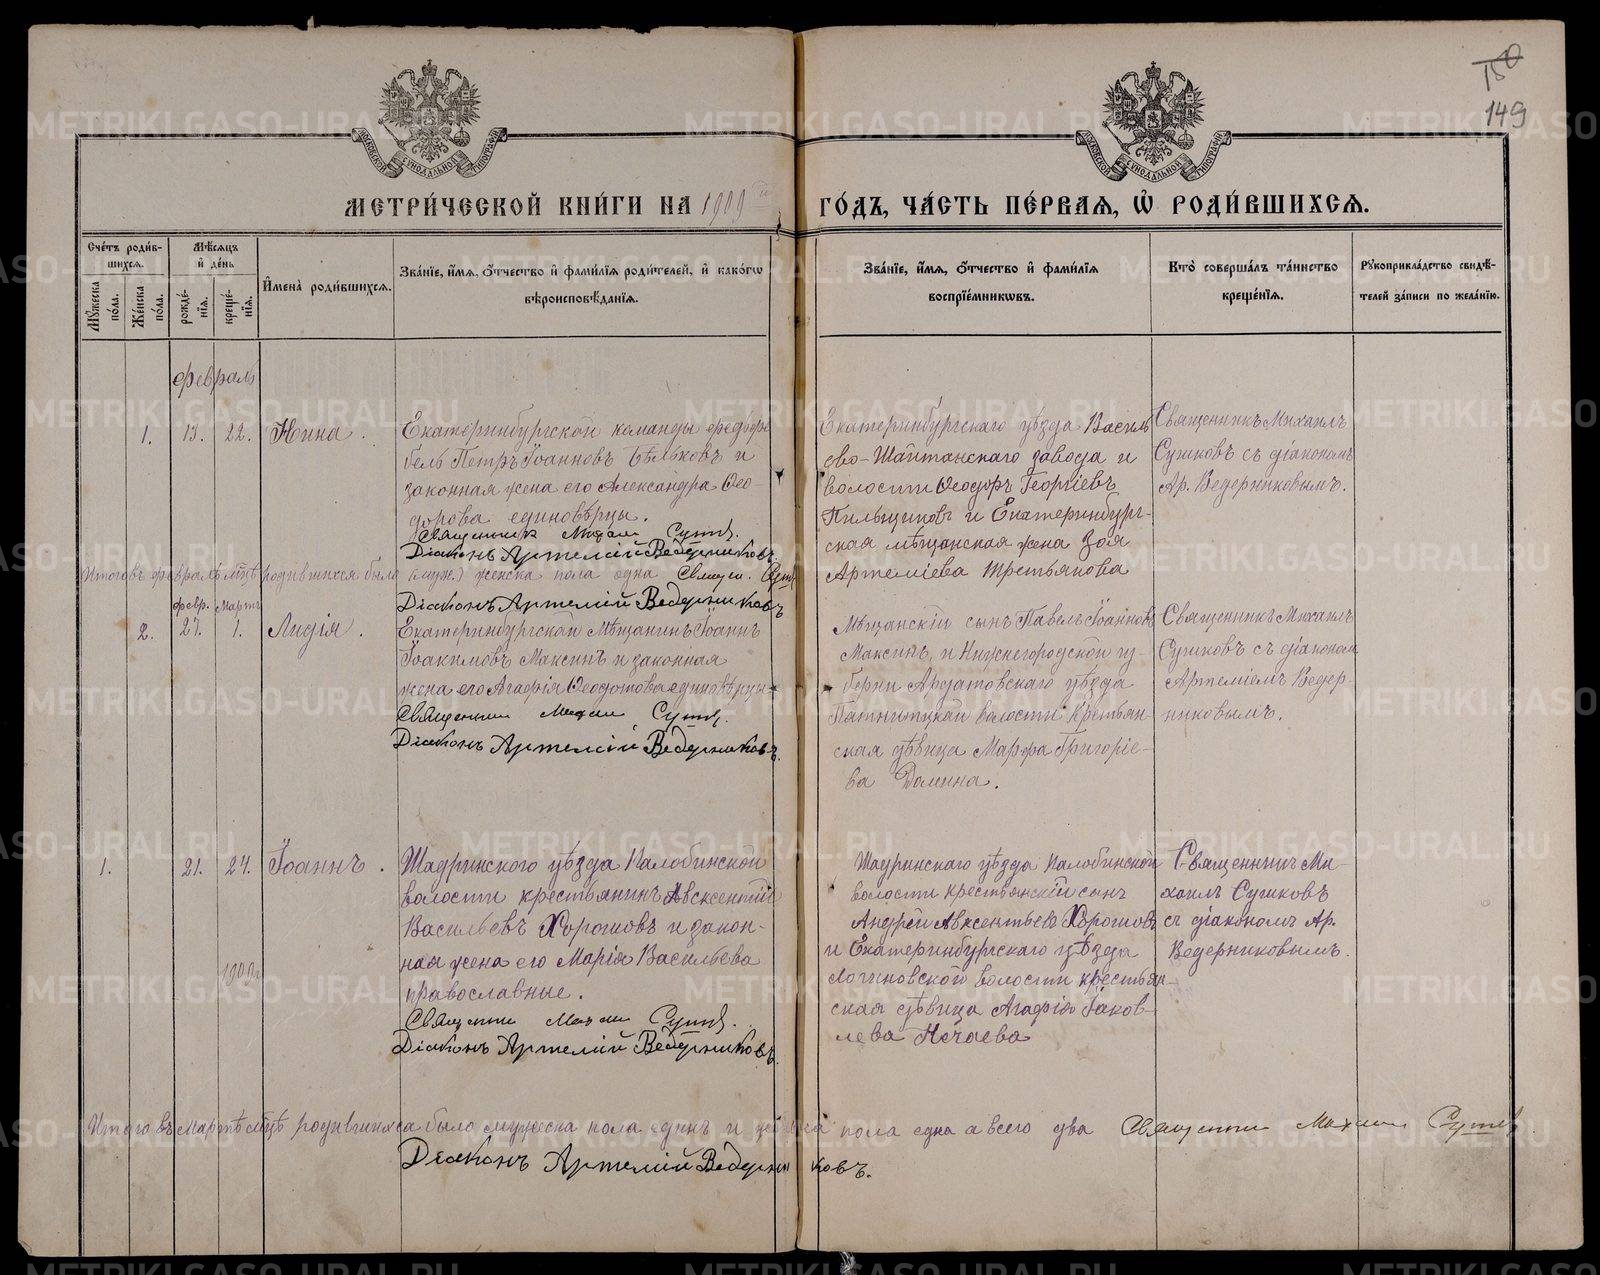 150
149
МОСКОВСКОЙ СѴНОДАЛЬНОЙ ТИПОГРАФІИ
МОСКОВСКОЙ СѴНОДАЛЬНОЙ ТИПОГРАФІИ
МЕТРИ́ЧЕСКОЙ КНИ́ГИ НА 1909 й ГО́ДЪ, ЧА́СТЬ ПЕ́РВАѦ, Ѽ РОДИ́ВШИХСѦ.
Сче́тъ роди́в-
шихсѧ.
Мꙋ́жеска по́ла.
Же́нска по́ла.
Мѣ́сѧцъ
и҆ де́нь
рожде́-
нїѧ.
креще́-
нїѧ.
И҆мена̀ роди́вшихсѧ.
Зва́нїе, и҆́мѧ, ѻ҆́тчество и҆ фами́лїѧ роди́телей, и҆ како́гѡ
вѣроисповѣ́данїѧ.
Зва́нїе, и҆́мѧ, ѻ҆́тчество и҆ фами́лїѧ
воспрїе́мникѡвъ.
Кто̀ соверша́лъ та́инство
креще́нїѧ.
Рꙋкоприкла́дство свидѣ́-
телей за́писи по жела́нїю.
февраль
1. 13. 22. Нина.
Екатеринбургской команды фельдфе
бель Петръ Іоанновъ Бѣльковъ и
законная жена его Александра Ѳео-
дорова единовѣрцы.
Священникъ Михаил Сушков.
Діаконъ Артемій Ведерниковъ.
Екатеринбургскаго уѣзда Василь
ево-Шайтанскаго завода и
волости Ѳеодоръ Георгіевъ
Пильщиковъ и Екатеринбург-
ская мѣщанская жена Зоя
Артеміева Третьякова
Священникъ Михаилъ
Сушковъ съ діакономъ
Ар. Ведерниковымъ.
Итого въ февралѣ мцѣ родившихся было (муж.) женска пола одна Священ. Суш
Діаконъ Артемій Ведерниковъ
февр. Мартъ
2. 27. 1. Лидія.
Екатеринбургской Мѣщанинъ Іоаннъ
Іоакимовъ Максинъ и законная
жена его Агафія Ѳеодотова единовѣрцы
Священник Михаил Сушков.
Діаконъ Артемій Ведерниковъ.
Мѣщанскій сынъ Павелъ Іоанновъ
Максинъ, и Нижнегородской гу-
берни Ардатовскаго уѣзда
волости Крестьян-
ская дѣвица Марфа Григоріе-
ва Долина.
Священникъ Михаилъ
Сушковъ съ діакономъ
Артеміемъ Ведер-
никовымъ.
1. 21. 24. Іоаннъ.
1909
Шадринскаго уѣзда Налобинской
волости крестьянинъ Авксентій
Васильевъ Хорошовъ и закон-
ная жена его Марія Васильева
православные.
Священник Михаил Сушков.
Діаконъ Артемій Ведерниковъ.
Шадринскаго уѣзда Налобинской
волости крестьянскій сынъ
Андрей Авксентьевъ Хорошовъ
и Екатеринбургскаго уѣзда
Логиновской волости крестьян-
ская дѣвица Агафія Іаков-
лева Нечаева
Священникъ Ми-
хаилъ Сушковъ
съ діакономъ Ар.
Ведерниковымъ.
Итого въ Мартѣ мцѣ родившихся было мужеска пола одинъ и женска пола одна а всего два Священник Михаил Сушков
Діаконъ Артемій Ведерниковъ.
METRIKI.GASO-URAL.RU